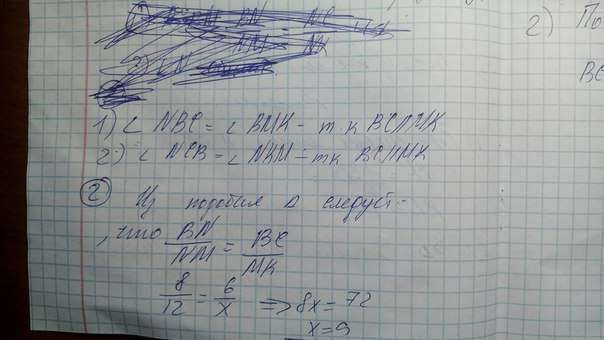 2) По
BC
1) ∠ NBC = ∠ BMK - т к BC//MK
2) ∠ NCB = ∠ NKM - тк BC//MK
2 Из подобия Δ следует -
, что BN/NM = BC/MK
8/12 = 6/x => 8x = 72
x = 9